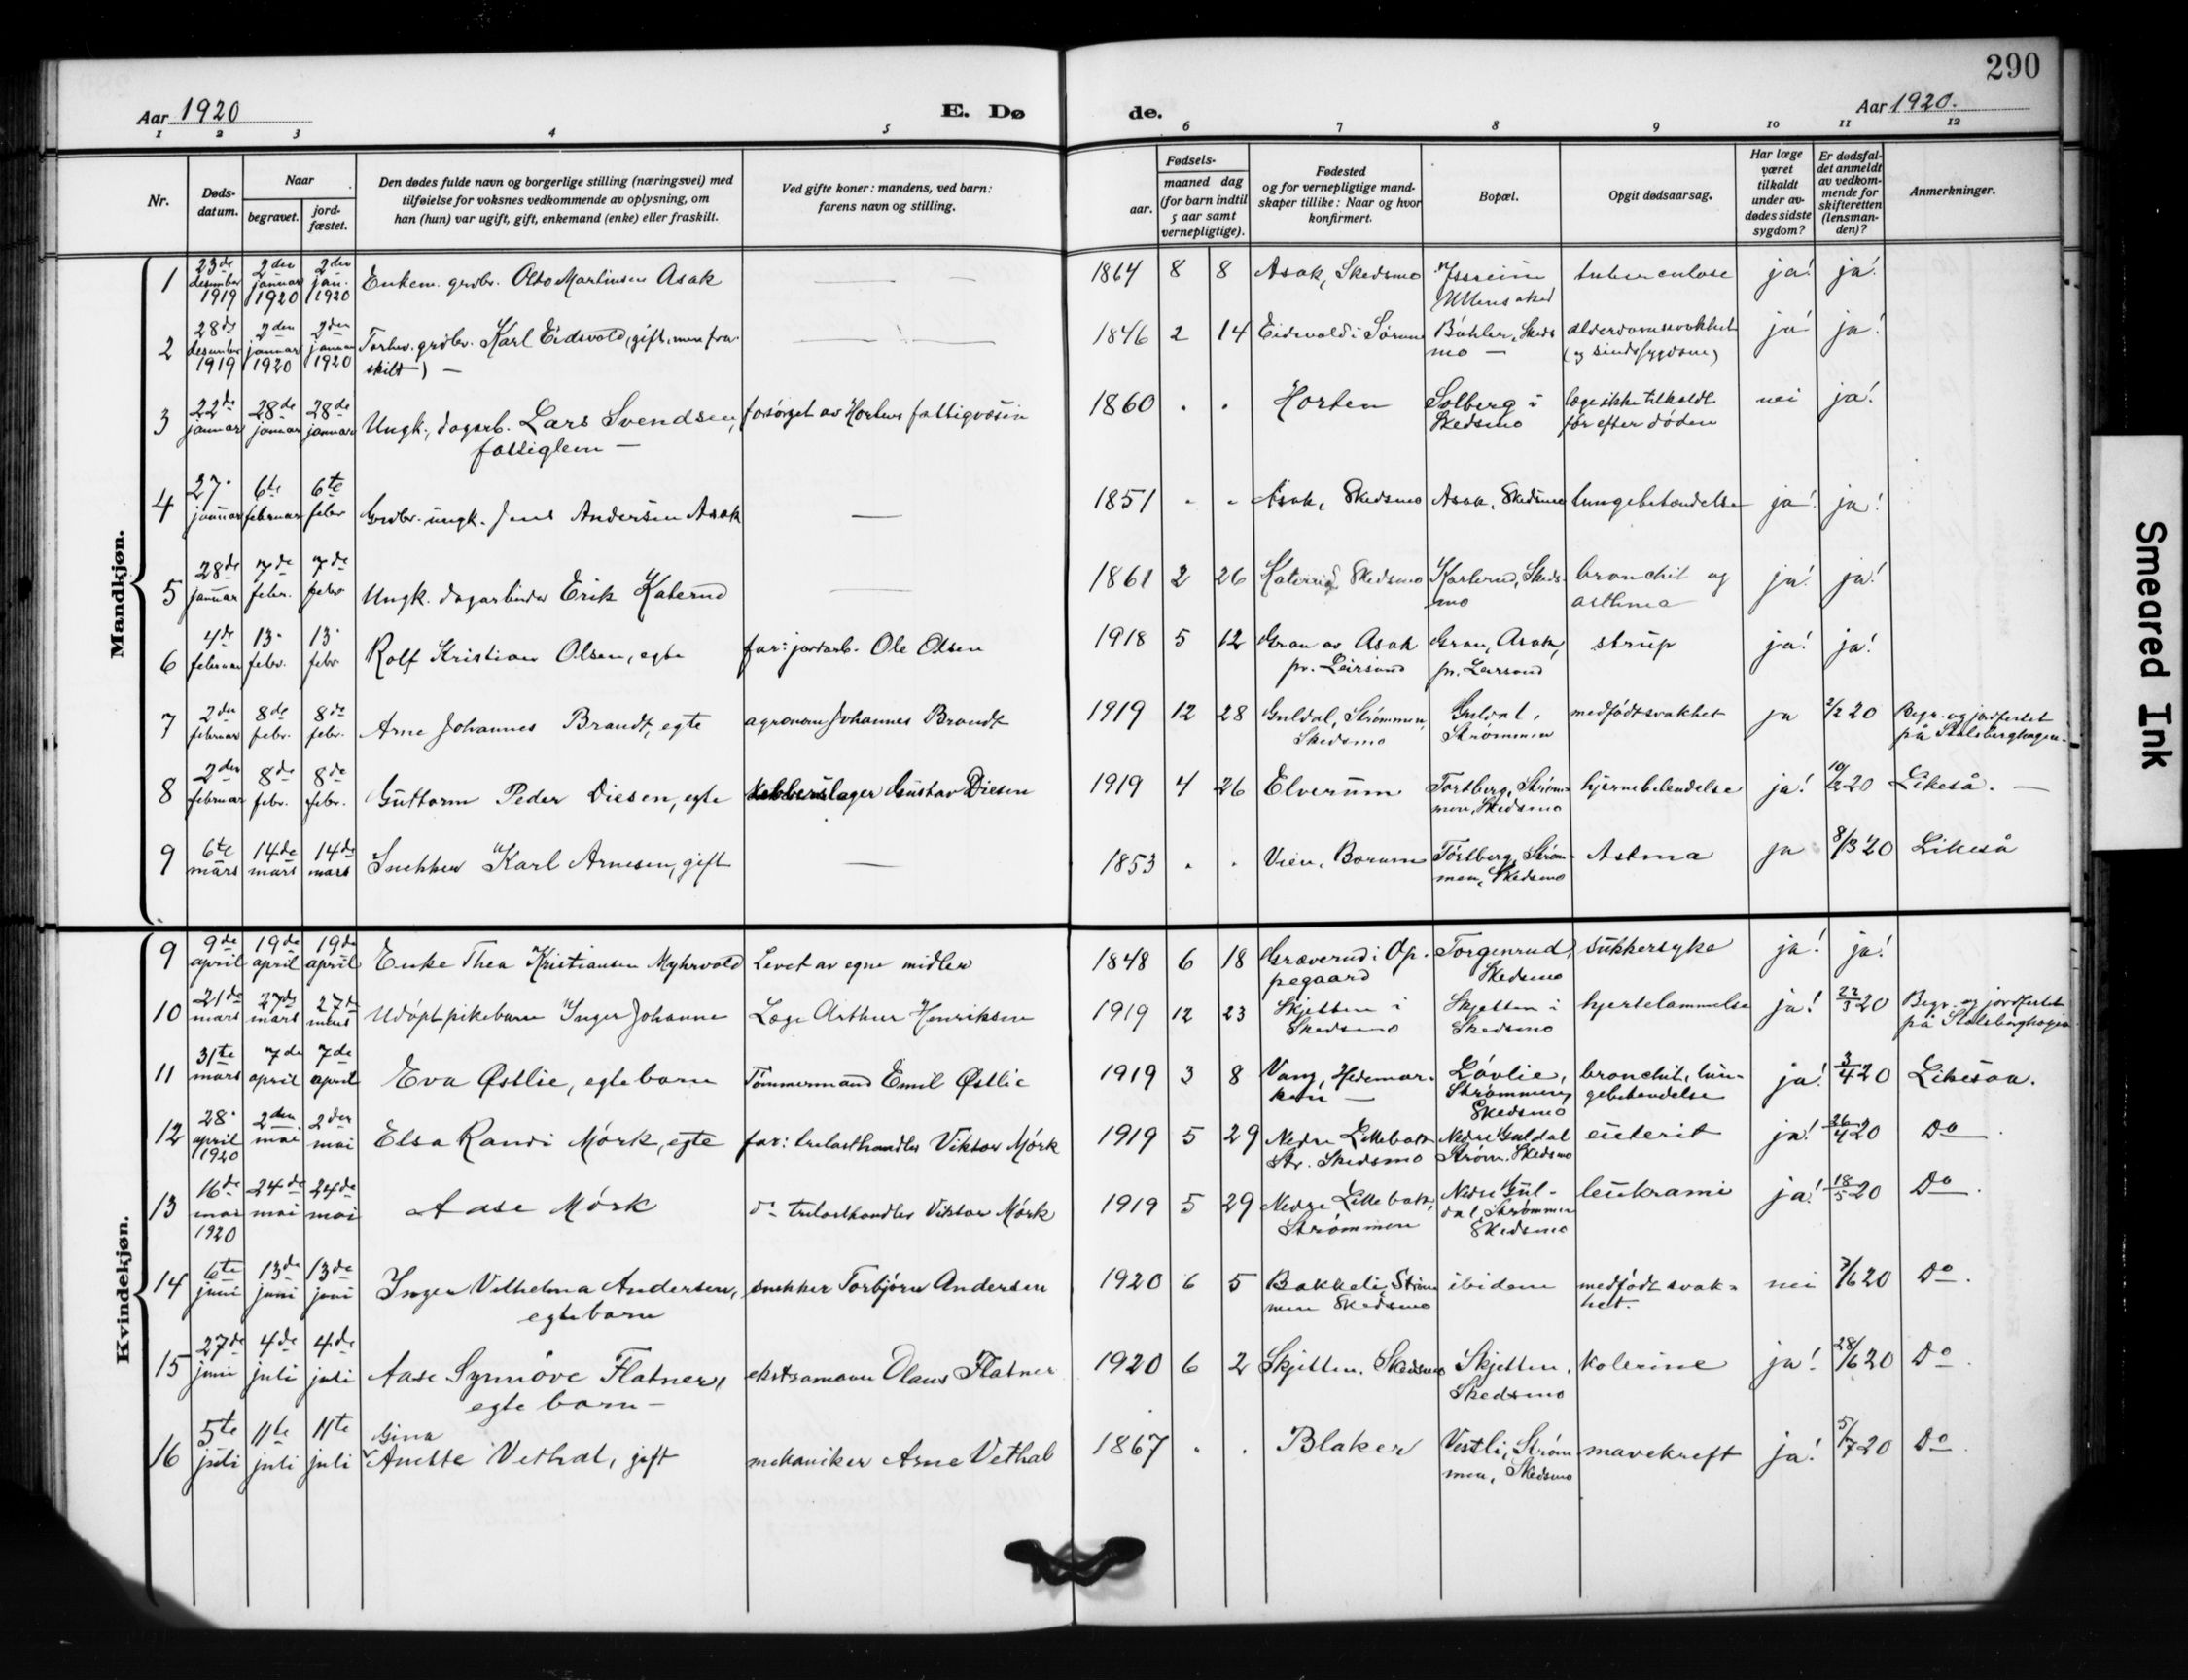 290
Aar 1920
E. Dø
de.
Aar 1920.
1 2 3 4 5 6 7 8 9 10 11 12
Nr.
Døds-
datum.
Naar
begravet.
jord-
fæstet.
Den dødes fulde navn og borgerlige stilling (næringsvei) med
tilføielse for voksnes vedkommende av oplysning, om
han (hun) var ugift, gift, enkemand (enke) eller fraskilt.
Ved gifte koner: mandens, ved barn:
farens navn og stilling.
Fødsels-
aar.
maaned dag
(for barn indtil
5 aar samt
vernepligtige).
Fødested
og for vernepligtige mand-
skaper tillike: Naar og hvor
konfirmert.
Bopæl.
Opgit dødsaarsag.
Har læge
været
tilkaldt
under av-
dødes sidste
sygdom?
Er dødsfal-
det anmeldt
av vedkom-
mende for
skifteretten
(lensman-
den)?
Anmerkninger.
Mandkjøn.
1 23de desember 1919 2den januar 1920 2den jan. 1920 Enkem. grdbr. Otto Martinsen Asak — 1864 8 8 Asak, Skedsmo Jssreim Ullensaker tuberculose ja! ja!
2 28de desember 1919 2den januar 1920 2den januar 1920 Forhv. grdbr. Karl Eidsvold, gift, men fra-
skilt) — 1846 2 14 Eidsvold i Sørum Bøhler, Skeds
mo — alderdomssvakhet
(og sindssygdom) ja! ja!
3 22de januar 28de januar 28de januar Ungk., dagarb. Lars Svendsen, forsørget av Hortens fattigvæsen 1860 . . Horten Solberg i
Skedsmo læge ikke tilkaldt
før efter døden nei ja!
fattiglem —
4 27. januar 6te februar 6te febr Grdbr. ungk. Jens Andersen Asak — 1851 - - Asak, Skedsmo Asak, Skedsmo lungebetændelse ja! ja!
5 28de januar 7de febr. 7de febr Ungk. dagarbeider Erik Katerud 1861 2 26 Katerud Skedsmo Karterud, Skeds-
mo bronchit og
asthma ja! ja!
6 4de februar 13. febr. 13. febr Rolf Kristian Olsen, egte far: jordarb. Ole Olsen 1918 5 12 Gran av Asak
pr. Leirsund Gran, Asak,
pr. Leirsund strup ja! ja!
7 2den februar 8de febr. 8de febr. Arne Johannes Brandt, egte agronom Johannes Brandt 1919 12 28 Guldal, Strømmen,
Skedsmo Guldal,
Strømmen medfødt svakhet ja 2/2 20 Begr. og jordfestet
på Stalsberghagen.
8 2den februar 8de febr. 8de febr. Guttorm Peder Diesen, egte Kobberslager Gustav Diesen 1919 4 26 Elverum Torsberg, Strøm-
men, Skedsmo hjernebetendelse ja! 10/2 20 Likeså. —
9 6te mars 14de mars 14de mars Snekker Karl Arnesen, gift — 1853 . . Vien, Borum Torsberg, Strøm-
men, Skedsmo Astma ja 8/3 20 Likeså
Kvindekjøn.
9 9de april 19de april 19de april Enke Thea Kristiansen Myhrvold Levet av egne midler 1848 6 18 Græverud i Op-
pegaard Torgenrud,
Skedsmo sukkersyke ja! ja!
10 21de mars 27de mars 27de mars Udøpt pikebarn Inger Johanne Læge Arthur Henriksen 1919 12 23 Skjetten i
Skedsmo Skjetten i
Skedsmo hjertelammelse ja! 22/3 20 Begr. og jordfestet
på Stalsberghagen
11 31te mars 7de april 7de april Eva Østlie, egte barn Tømmermand Emil Østlie 1919 3 8 Vang, Hedemar-
ken — Løvlie,
Strømmen,
Skedsmo bronchit, lun-
gebetændelse ja! 3/4 20 Likesaa.
12 28. april 1920 2den mai 2den mai Elsa Randi Mørk, egte far: trelasthandler Viktor Mørk 1919 5 29 Nedre Lillebakk
Str. Skedsmo Nedre Guldal
Strøm. Skedsmo enterit ja! 26/4 20 Do.
13 16de mai 1920 24de mai 24de mai Aase Mørk do trelasthandler Viktor Mørk 1919 5 29 Nedre Lillebakk,
Strømmen Nedre Gul-
dal, Strømmen
Skedsmo leukæmi ja! 18/5 20 Do.
14 6te juni 13de juni 13de juni Inger Vilhelma Andersen,
egte barn snekker Torbjørn Andersen 1920 6 5 Bakkeli, Strøm
men Skedsmo ibidem medfødt svak-
het. nei 7/6 20 Do.
15 27de juni 4de juli 4de juli Aase Synnøve Flatner,
egte barn — ekstramann Olaus Flatner 1920 6 2 Skjetten. Skedsmo Skjetten,
Skedsmo kolerine ja! 28/6 20 Do.
16 5te juli 11te juli 11te juli Gina
Anette Vethal, gift mekaniker Arne Vethal 1867 . . Blaker Vestli, Strøm-
men, Skedsmo mavekreft ja! 5/7 20 Do.
Smeared Ink